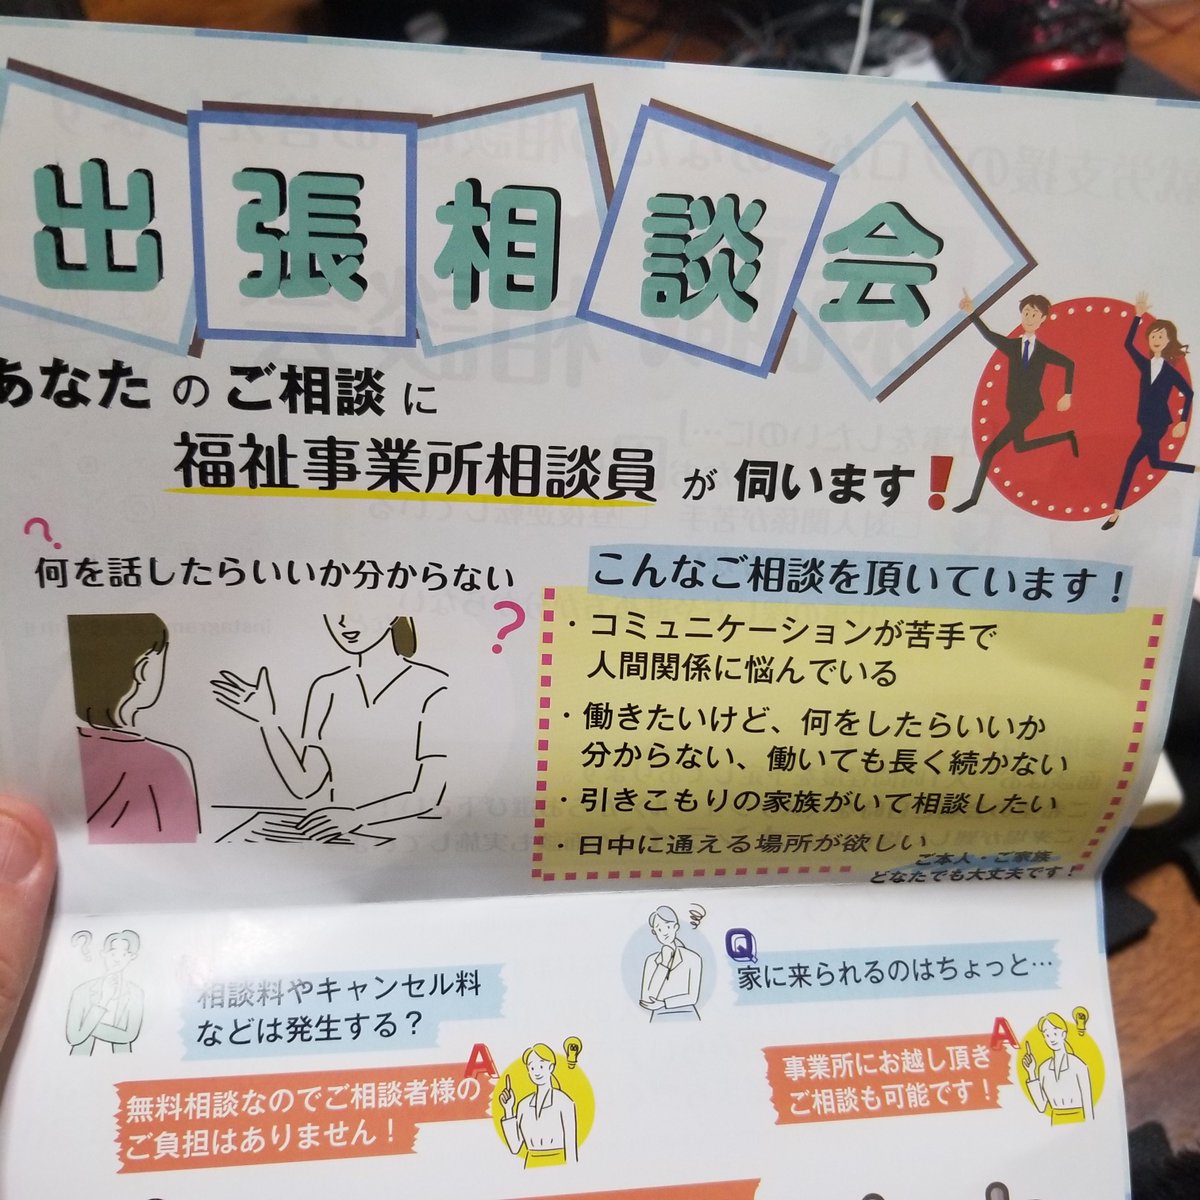 出張相談会
あなたのご相談に
福祉事業所相談員が伺います!
?
何を話したらいいか分からない
?
こんなご相談を頂いています!
・コミュニケーションが苦手で
人間関係に悩んでいる
・働きたいけど、何をしたらいいか
分からない、働いても長く続かない
・引きこもりの家族がいて相談したい
・日中に通える場所が欲しい
ご本人・ご家族
どなたでも大丈夫です!
?
相談料やキャンセル料
などは発生する?
A
無料相談なのでご相談者様の
ご負担はありません!
Q
家に来られるのはちょっと…
A
事業所にお越し頂き
ご相談も可能です!